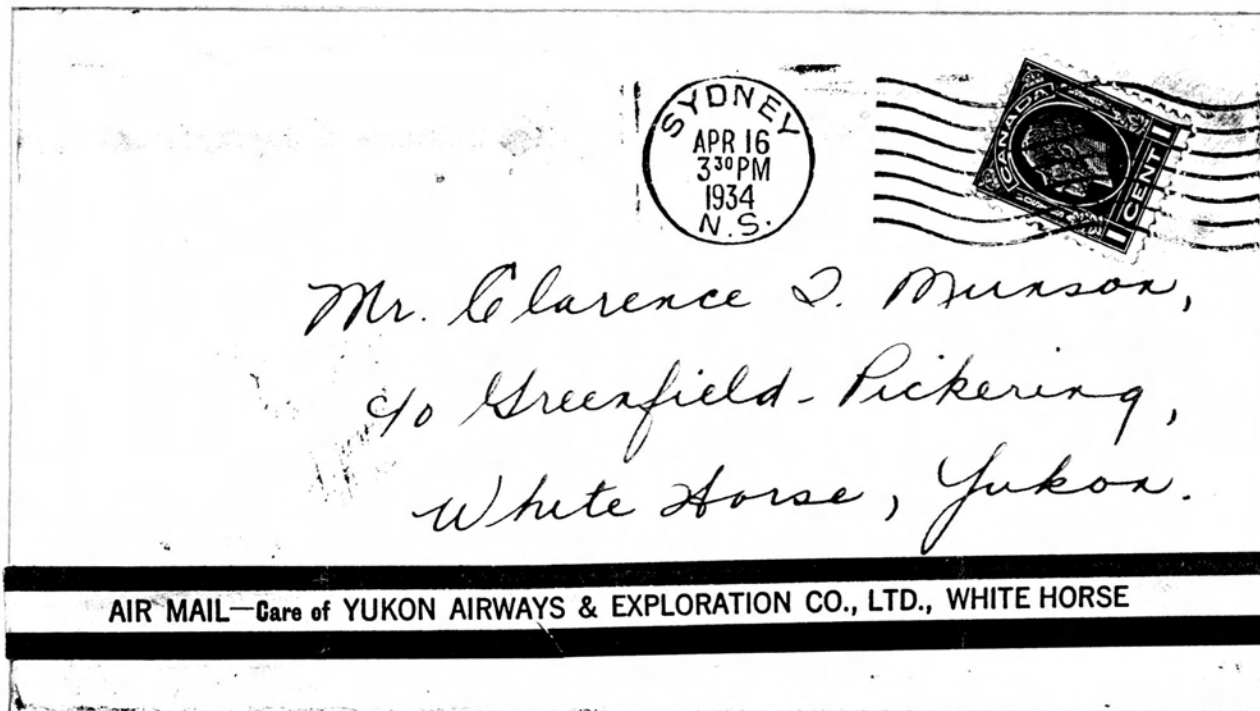 SYDNEY
APR 16
3 30 PM
1934
N.S.
CANADA
1 CENT 1
Mr. Clarence I. Munson,
c/o Greenfield-Pickering,
White Horse, Yukon.
AIR MAIL—Care of YUKON AIRWAYS & EXPLORATION CO., LTD., WHITE HORSE